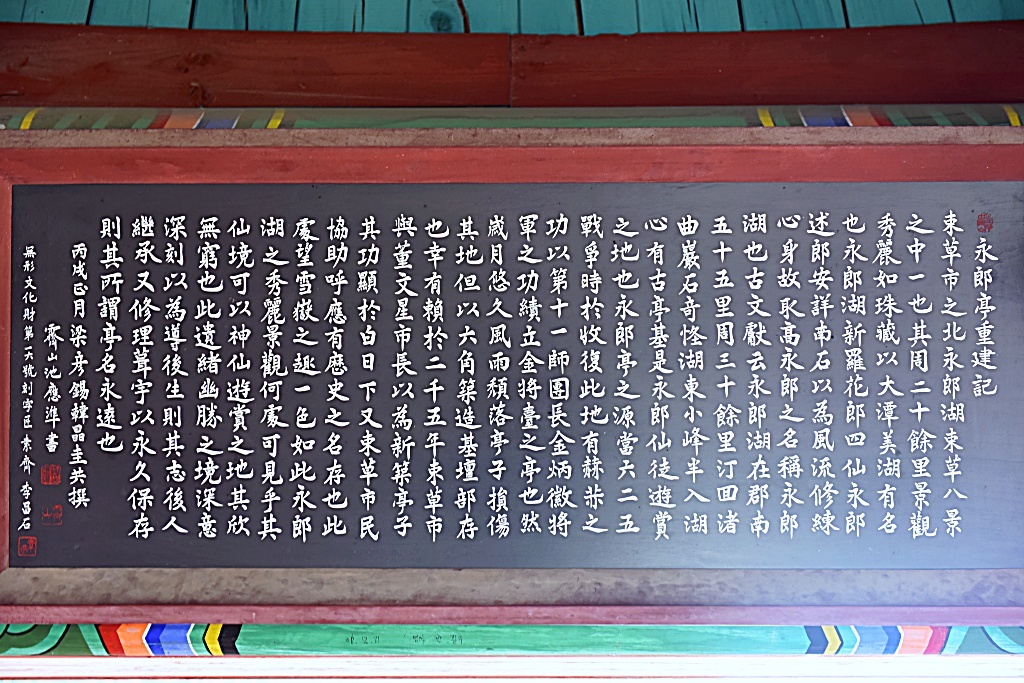 永郎亭重建記
束草市之北永郎湖束草八景
之中一也其周二十餘里景觀
秀麗如珠藏以大潭美湖有名
也永郎湖新羅花郎四仙永郎
述郎安詳南石以為風流修練
心身故取高永郎之名稱永郎
湖也古文獻云永郎湖在郡南
五十五里周三十餘里汀回渚
曲巖石奇怪湖東小峰半入湖
心有古亭基是永郎仙徒遊賞
之地也永郎亭之源當六二五
戰爭時於收復此地有赫恭之
功以第十一師團長金炳徽將
軍之功績立金將臺之亭也然
歲月悠久風雨頹落亭子損傷
其地但以六角築造基壇部存
也幸有賴於二千五年束草市
與董文星市長以為新築亭子
其功顯於白日下又束草市民
協助呼應有歷史之名存也此
處望雪嶽之趣一色如此永郎
湖之秀麗景觀何處可見乎其
仙境可以神仙遊賞之地其欣
無窮也此遺緒幽勝之境深意
深刻以為導後生則其志後人
繼承又修理葺宇以永久保存
則其所謂亭名永遠也
丙戌正月 梁彦錫韓晶圭共撰
齊山池應準書
無形文化財第二六號刻字匠 素齊 李昌石